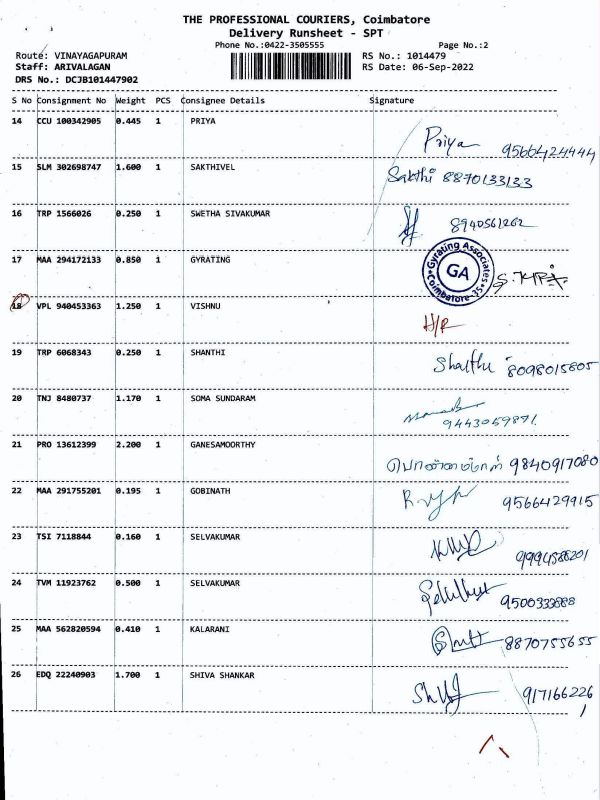 THE PROFESSIONAL COURIERS, Coimbatore
Delivery Runsheet - SPT
Phone No.:0422-3505555 Page No.:2
Route: VINAYAGAPURAM RS No.: 1014479
Staff: ARIVALAGAN RS Date: 06-Sep-2022
DRS No.: DCJB101447902
S No Consignment No Weight PCS Consignee Details Signature
14 CCU 100342905 0.445 1 PRIYA Priya 9566424444
15 SLM 302698747 1.600 1 SAKTHIVEL Sakthi 8870133133
16 TRP 1566026 0.250 1 SWETHA SIVAKUMAR 8940561262
17 MAA 294172133 0.850 1 GYRATING Gyrating Associates GA Coimbatore-35
18 VPL 940453363 1.250 1 VISHNU H/R
19 TRP 6068343 0.250 1 SHANTHI Shanthi 8098015805
20 TNJ 8480737 1.170 1 SOMA SUNDARAM 9443059891
21 PRO 13612399 2.200 1 GANESAMOORTHY 9840917080
22 MAA 291755201 0.195 1 GOBINATH 9566429915
23 TSI 7118844 0.160 1 SELVAKUMAR
24 TVM 11923762 0.500 1 SELVAKUMAR 9500333888
25 MAA 562820594 0.410 1 KALARANI 8870755655
26 EDQ 22240903 1.700 1 SHIVA SHANKAR 917166226